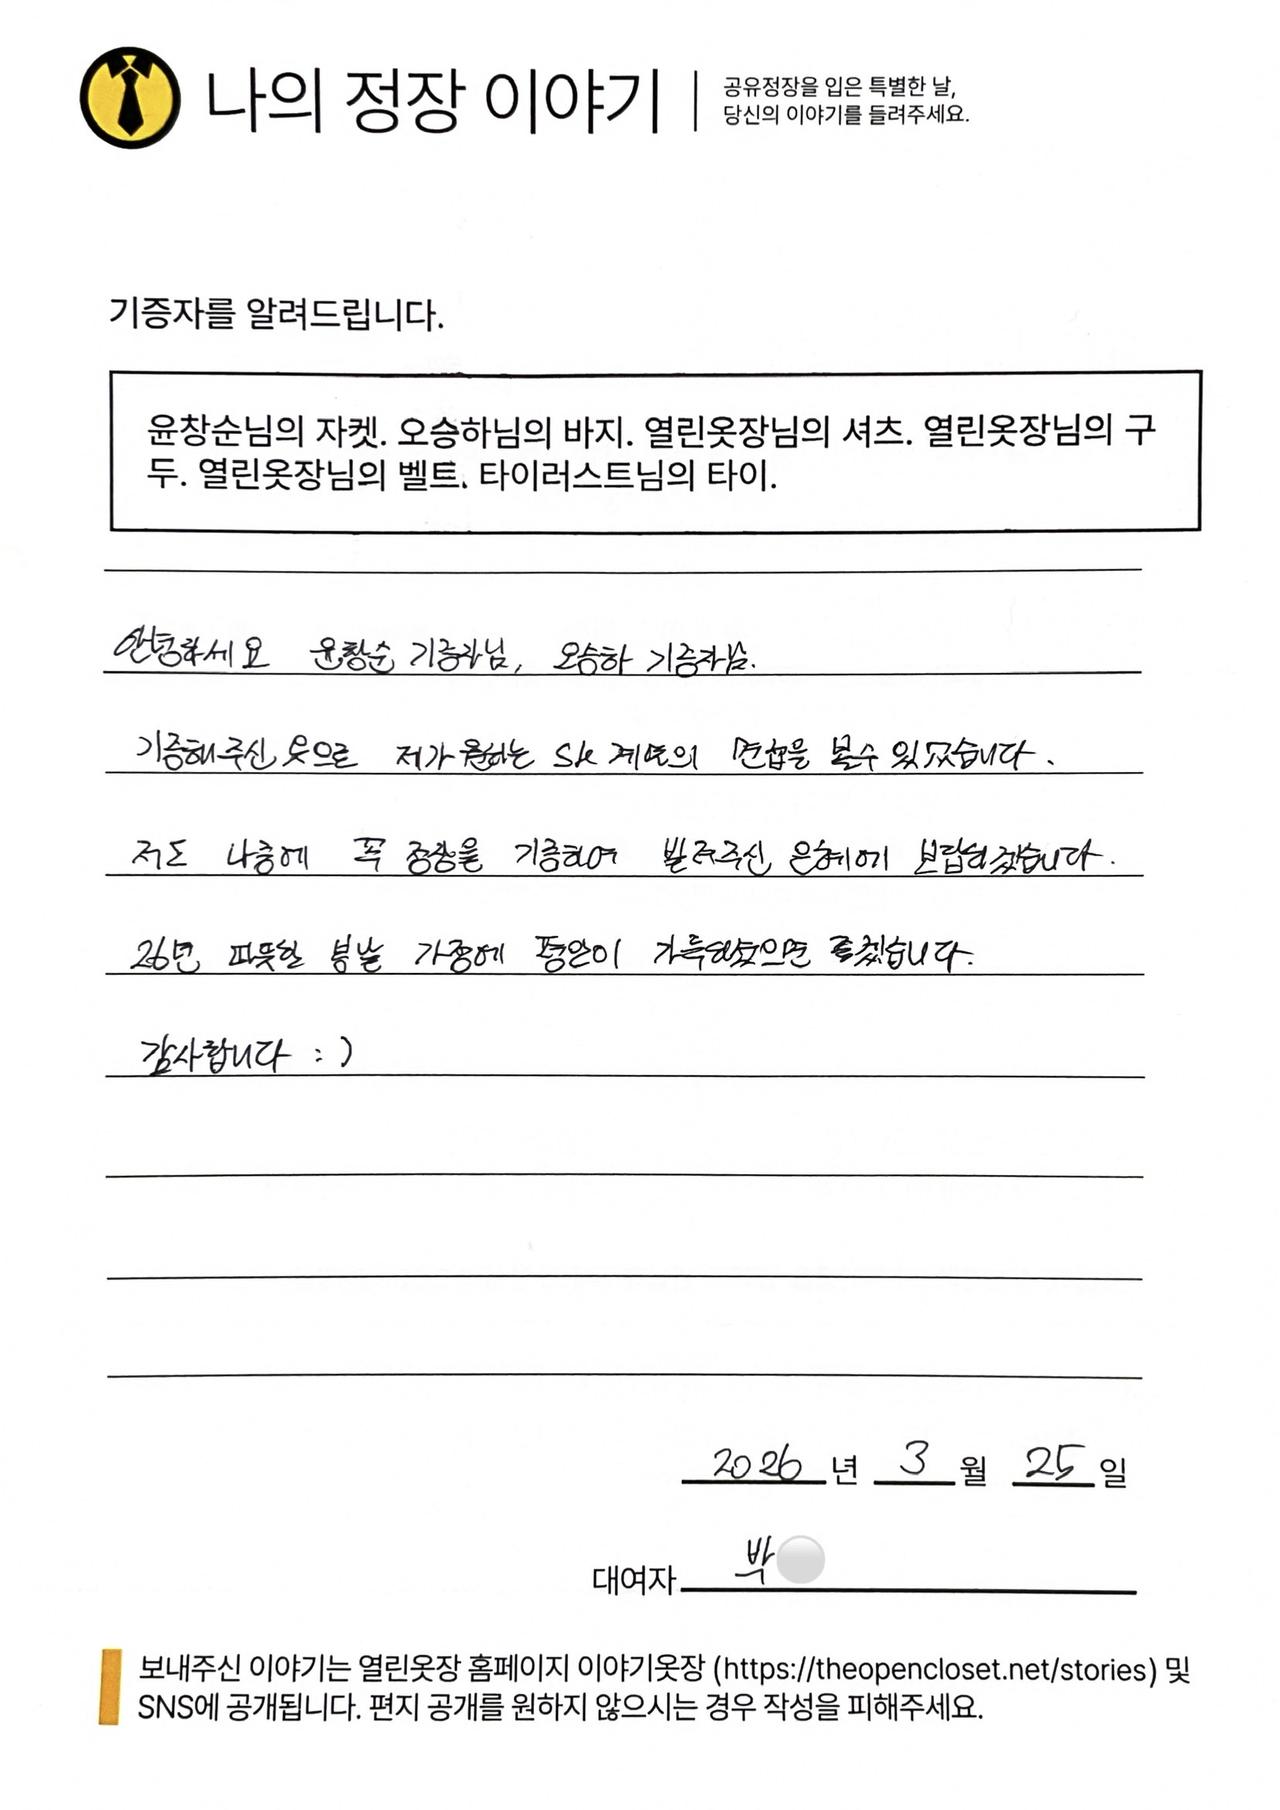 나의 정장 이야기
공유정장을 입은 특별한 날,
당신의 이야기를 들려주세요.
기증자를 알려드립니다.
윤창순님의 자켓. 오승하님의 바지. 열린옷장님의 셔츠. 열린옷장님의 구
두. 열린옷장님의 벨트. 타이러스트님의 타이.
안녕하세요 윤창순 기증자님, 오승하 기증자님.
기증해주신 옷으로 제가 원하는 SK 계열의 면접을 볼수 있었습니다.
저도 나중에 꼭 정장을 기증하여 빌려주신 은혜에 보답하겠습니다.
26년 따뜻한 봄날 가정에 평안이 가득하셨으면 좋겠습니다.
감사합니다 : )
2026 년 3 월 25 일
대여자 박
보내주신 이야기는 열린옷장 홈페이지 이야기옷장 (https://theopencloset.net/stories) 및
SNS에 공개됩니다. 편지 공개를 원하지 않으시는 경우 작성을 피해주세요.